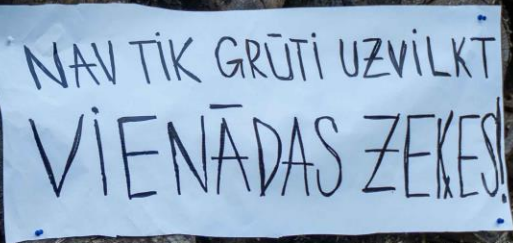 NAV TIK GRŪTI UZVILKT
VIENĀDAS ZEĶES!